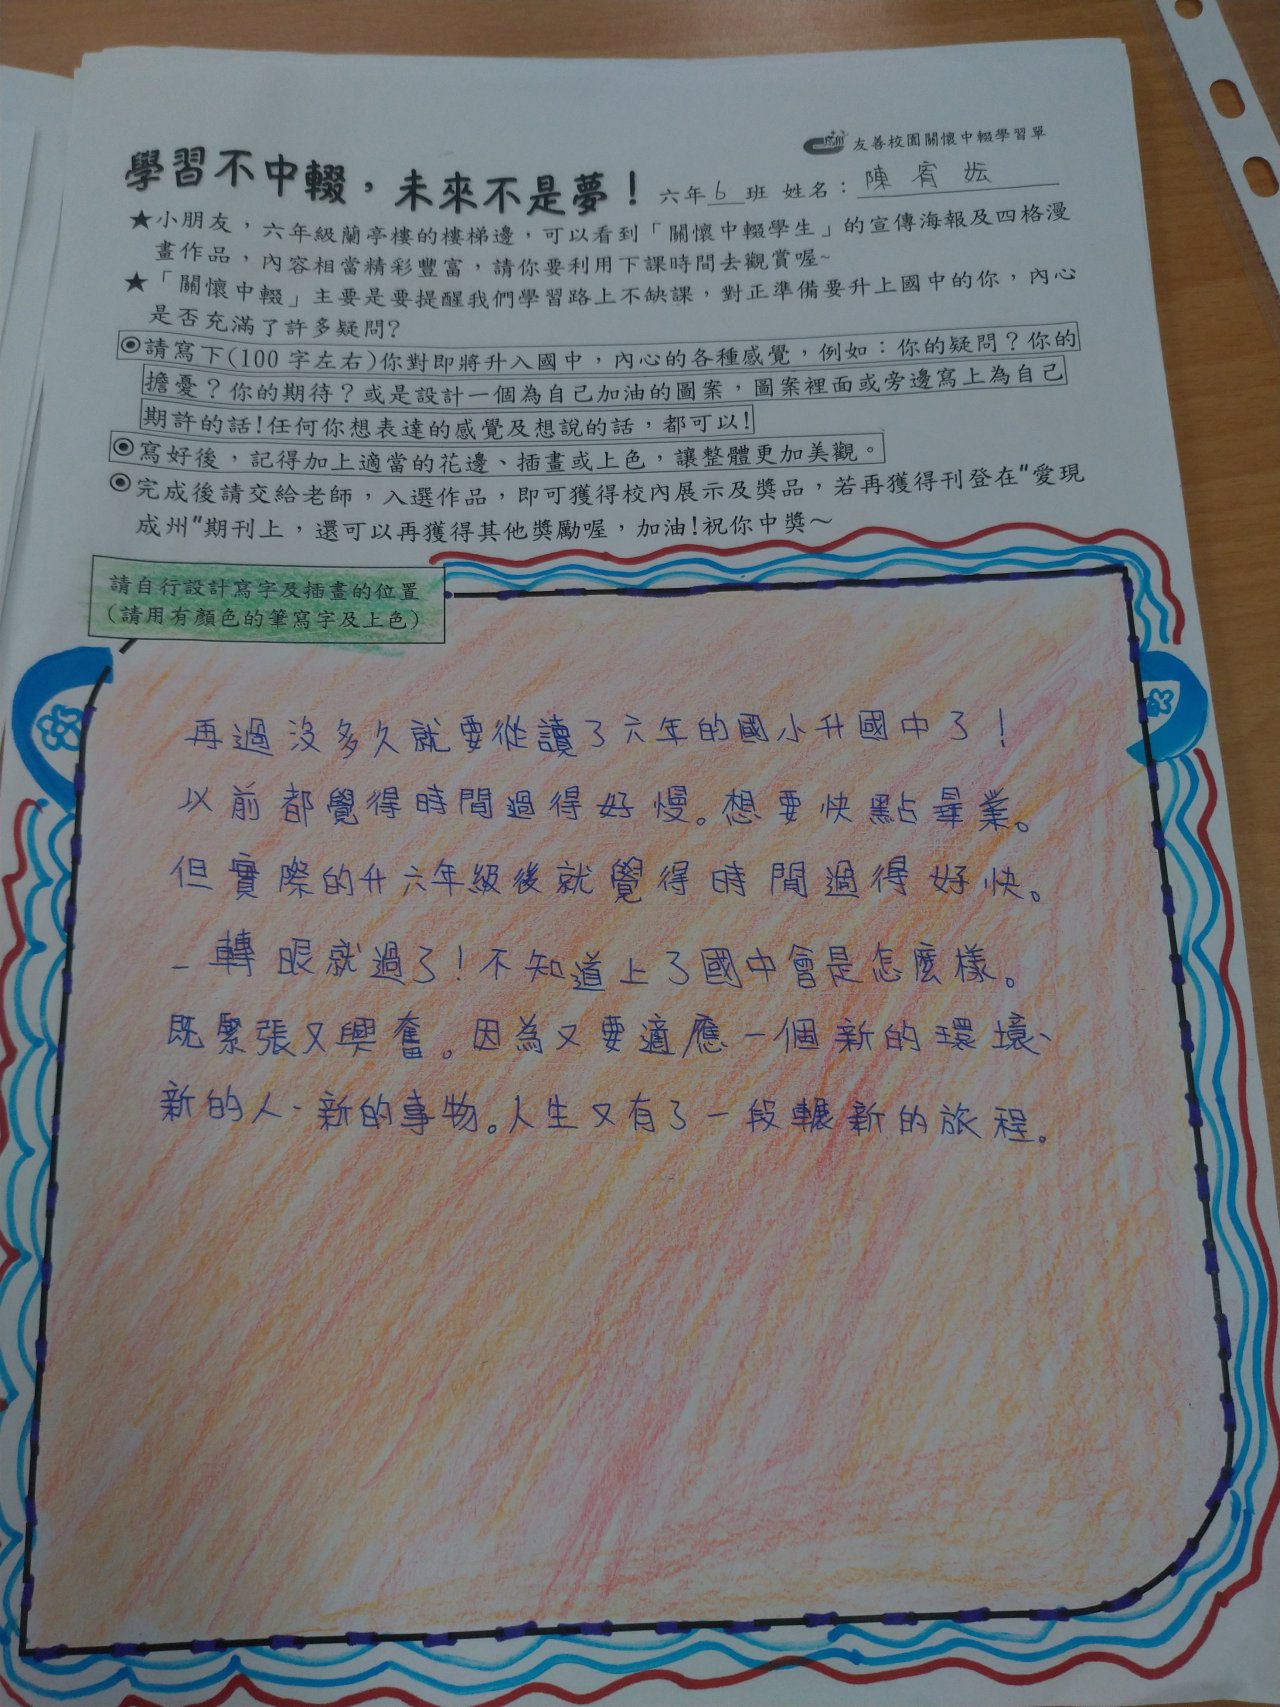 友善校園關懷中輟學習單
學習不中輟，未來不是夢！ 六年6班 姓名：陳宥妘
★小朋友，六年級蘭亭樓的樓梯邊，可以看到「關懷中輟學生」的宣傳海報及四格漫
畫作品，內容相當精彩豐富，請你要利用下課時間去觀賞喔~
★「關懷中輟」主要是要提醒我們學習路上不缺課，對正準備要升上國中的你，內心
是否充滿了許多疑問?
◉請寫下(100 字左右)你對即將升入國中，內心的各種感覺，例如：你的疑問？你的
擔憂？你的期待？或是設計一個為自己加油的圖案，圖案裡面或旁邊寫上為自己
期許的話!任何你想表達的感覺及想說的話，都可以!
◉寫好後，記得加上適當的花邊、插畫或上色，讓整體更加美觀。
◉完成後請交給老師，入選作品，即可獲得校內展示及獎品，若再獲得刊登在"愛現
成州"期刊上，還可以再獲得其他獎勵喔，加油!祝你中獎～
請自行設計寫字及插畫的位置
（請用有顏色的筆寫字及上色）
再過沒多久就要從讀了六年的國小升國中了！
以前都覺得時間過得好慢。想要快點畢業。
但實際的升六年級後就覺得時間過得好快。
一轉眼就過了！不知道上了國中會是怎麼樣。
既緊張又興奮。因為又要適應一個新的環境、
新的人、新的事物。人生又有了一段輾新的旅程。